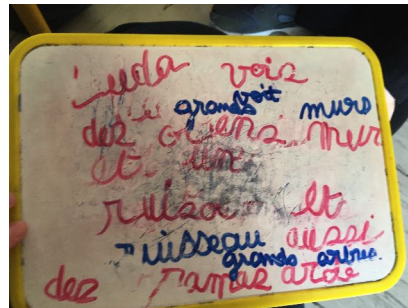 Luda vois
voit
grands murs
des grens mur
et un
ruiso et
ruissequ aussi
grands arbres
des